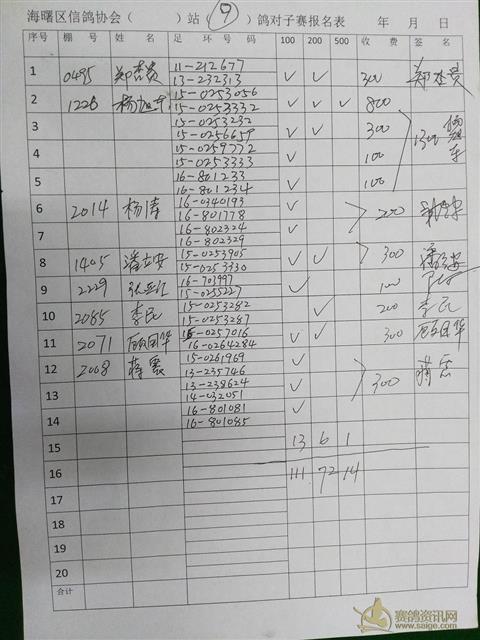 海曙区信鸽协会（ ）站（9）鸽对子赛报名表 年 月 日
序号 棚号 姓 名 足 环 号 码 100 200 500 收 费 签 名
1 0495 郑杰贵 11-212677 13-232313 ✓ ✓ 300 郑杰贵
2 1226 15-0253056 15-0253332 ✓ ✓ ✓ 800
3 15-0253232 15-0256659 ✓ ✓ 300 1300
4 15-0259772 15-0253333 ✓ 100
5 16-801233 16-801234 ✓ 100
6 2014 杨涛 16-0340193 16-801778 ✓ 200
7 16-802324 16-802329 ✓
8 1405 潘立安 15-0253905 15-0253330 ✓ ✓ 300
9 2229 16-701997 15-0255227 ✓ 100
10 2085 李民 15-0253282 15-0253287 ✓ 200 李民
11 2071 顾国华 16-0257016 16-0264284 ✓ ✓ 300 顾国华
12 2008 蒋震 15-0261969 13-235746 ✓ 300 蒋震
13 13-238624 14-032051 ✓
14 16-801081 16-801085 ✓
15 13 6 1
16 111 72 14
17
18
19
20
合计
赛鸽资讯网
www.saige.com